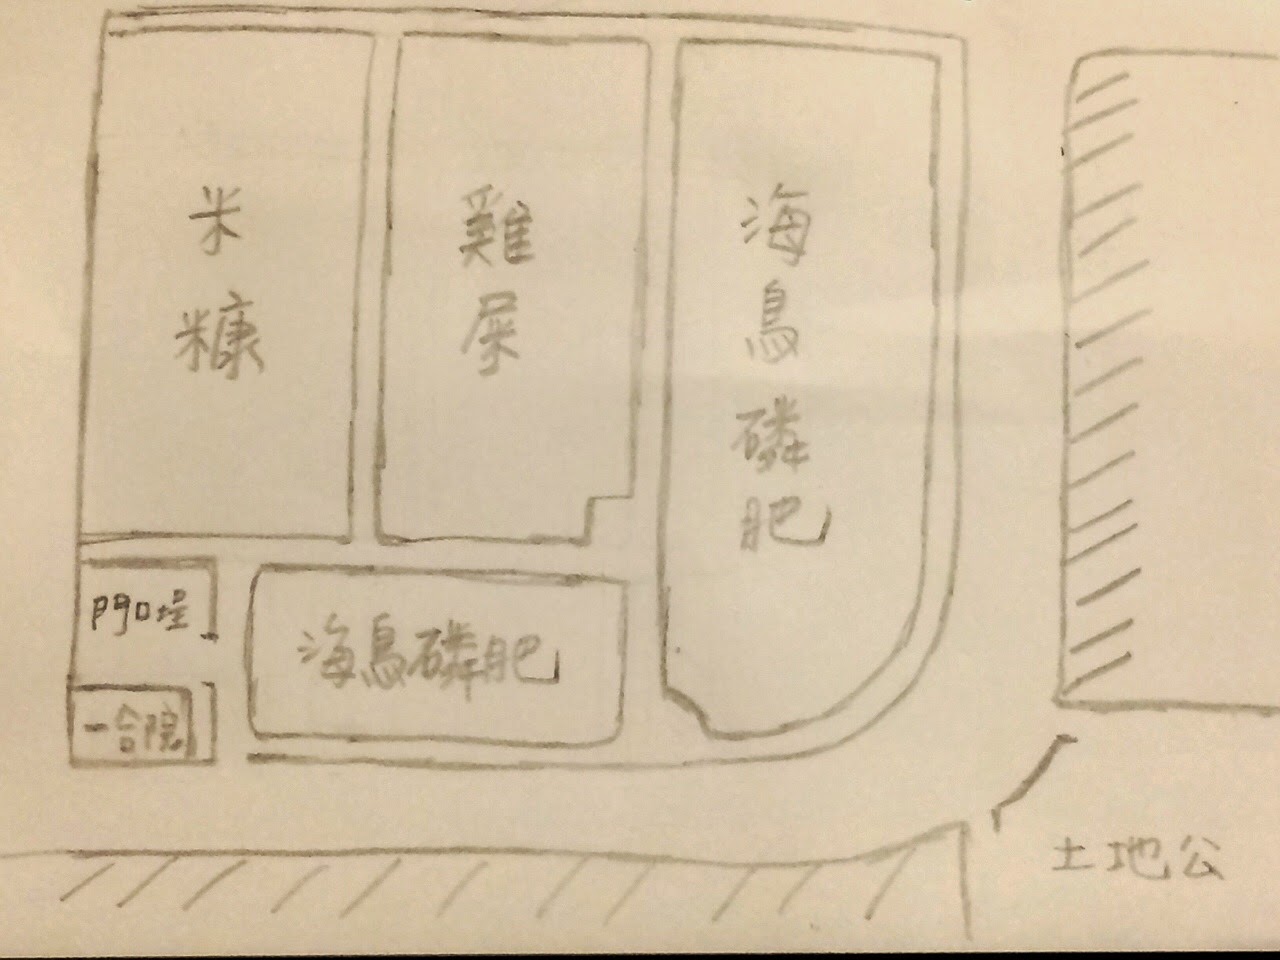 米糠
雞屎
海鳥磷肥
門口埕
海鳥磷肥
一合院
土地公